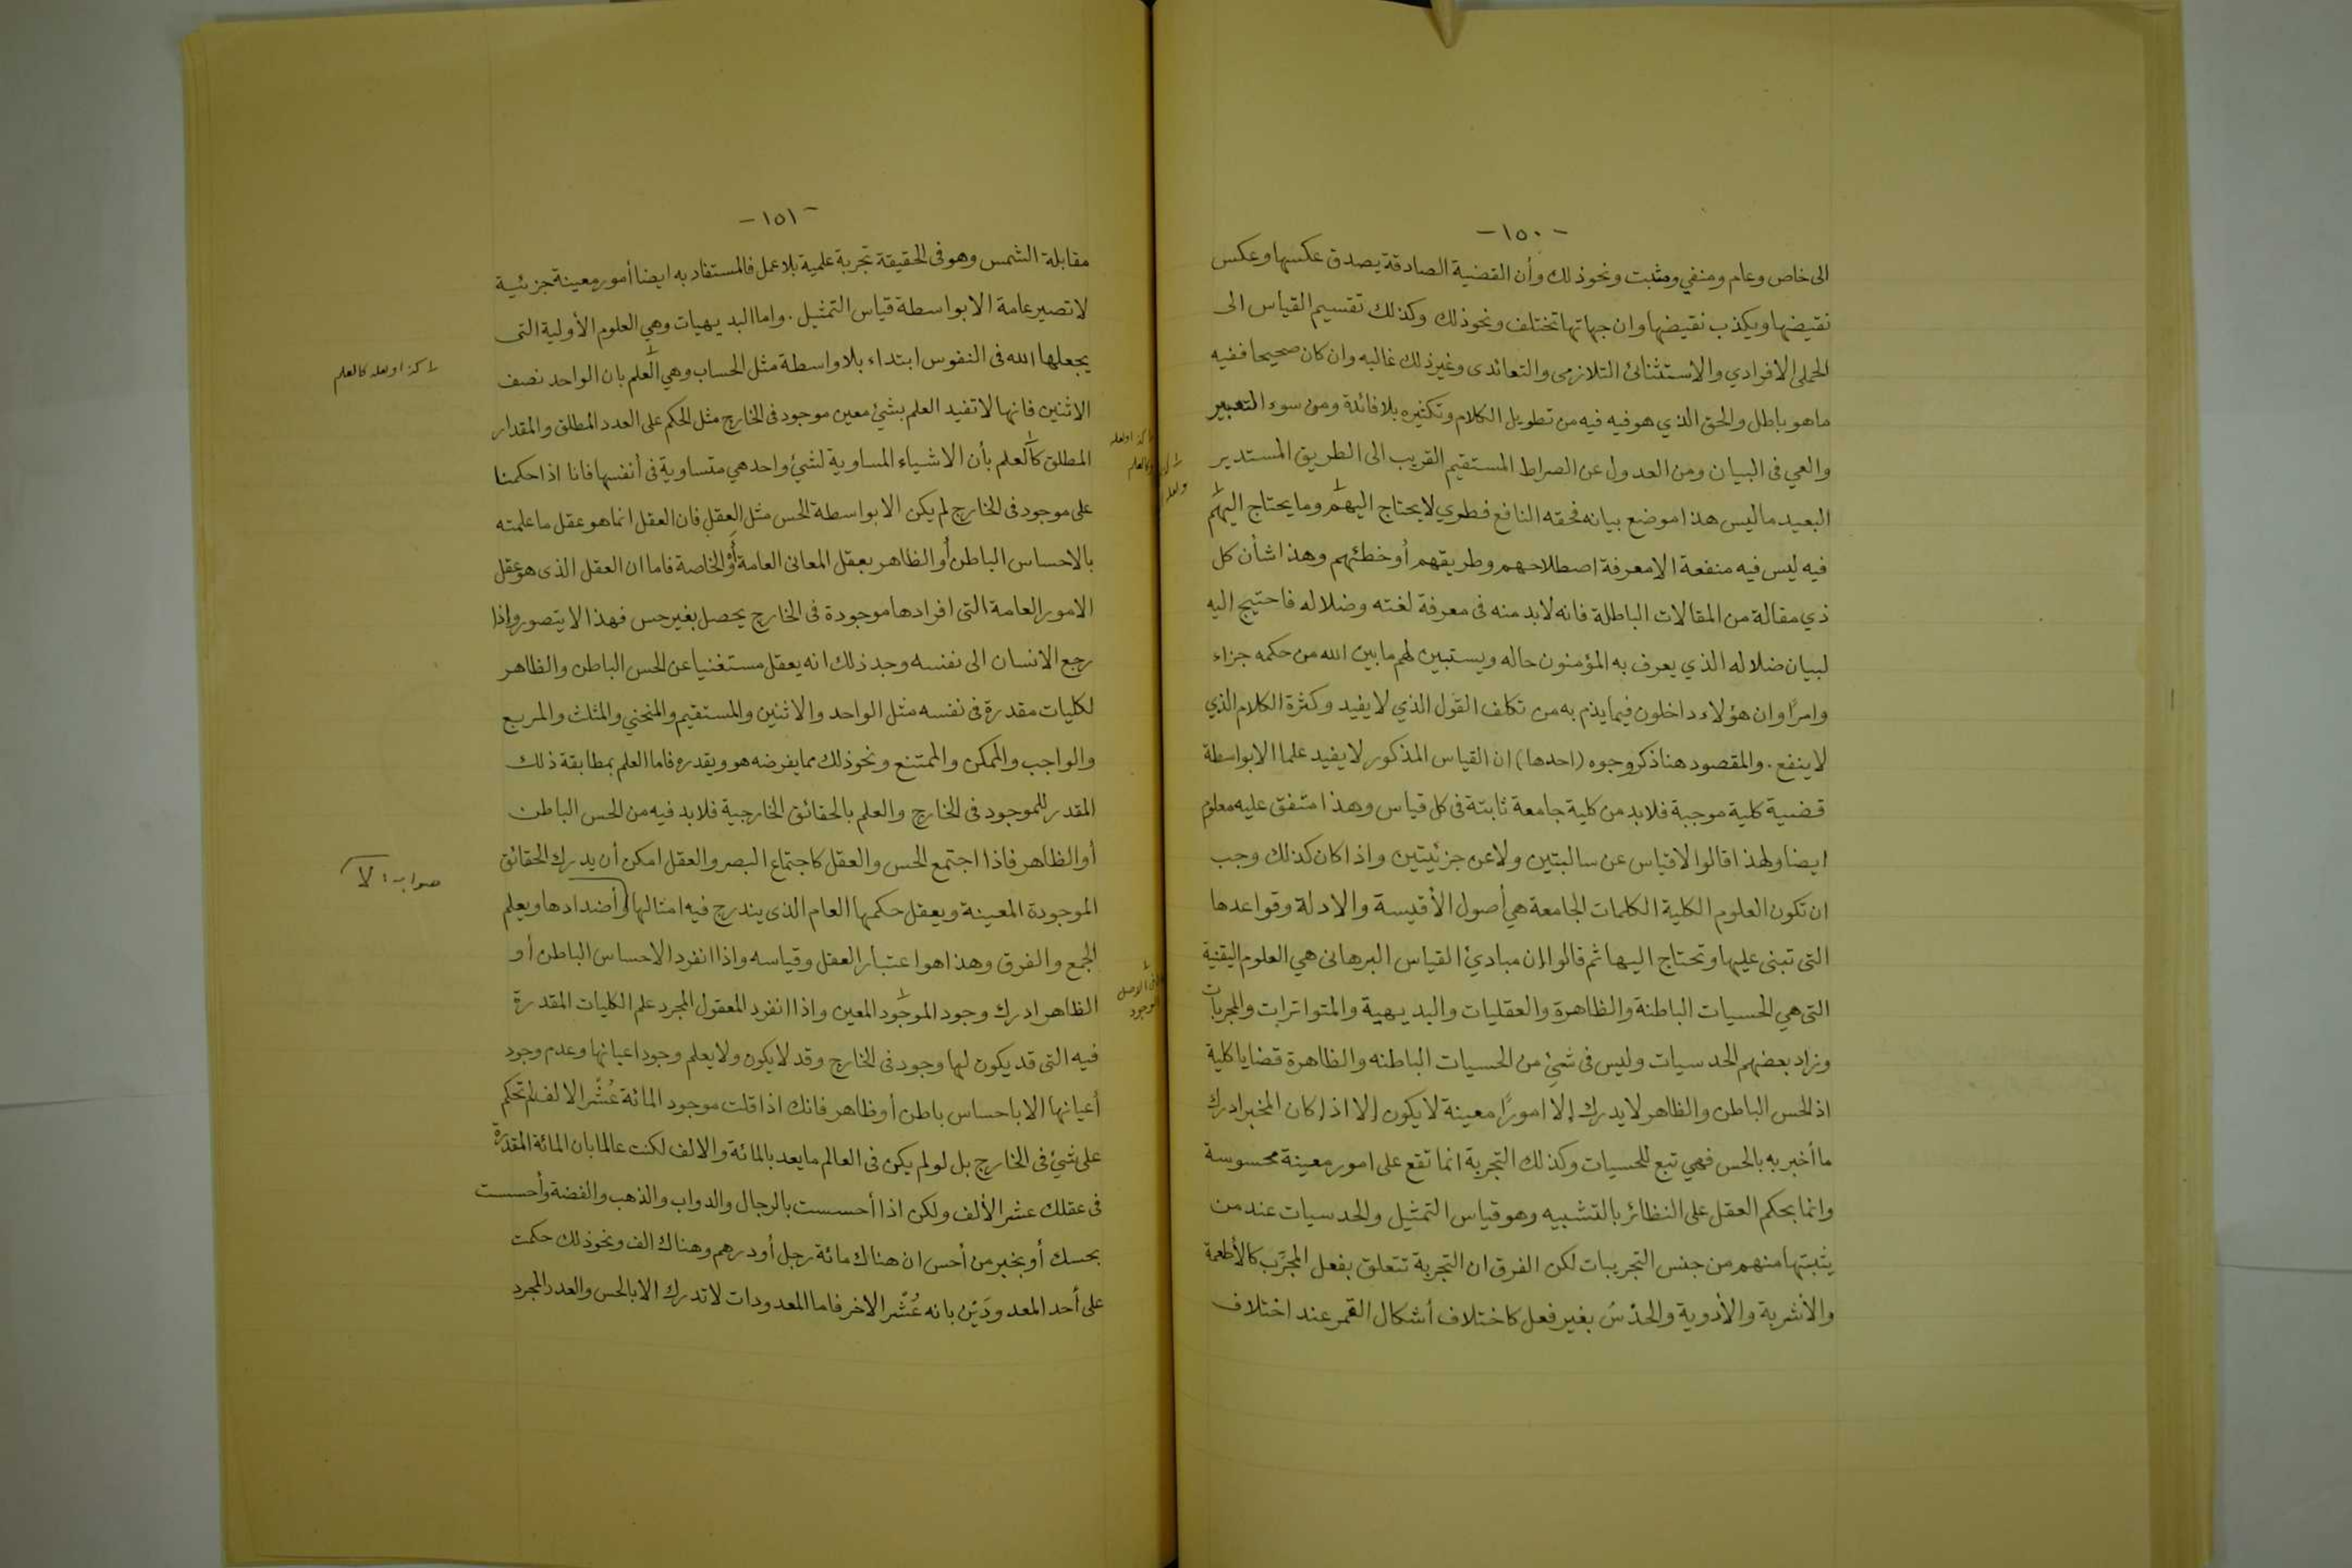 -١٥٠-
الى خاص وعام ومنفي ومثبت ونحو ذلك وأن القضية الصادقة يصدق عكسها وعكس
نقيضها ويكذب نقيضها وان جهاتها تختلف ونحو ذلك وكذلك تقسيم القياس الى
الحملى الافرادي والاستثنائ التلازمى والتعاندى وغير ذلك غالبه وان كان صحيحا ففيه
ما هو باطل والحق الذي هو فيه فيه من تطويل الكلام وتكثيره بلا فائدة ومن سوء التعبير
والعي فى البيان ومن العدول عن الصراط المستقيم القريب الى الطريق المستدير
البعيد ما ليس هذا موضع بيانه فحقه النافع فطري لا يحتاج اليهم وما يحتاج اليهم
فيه ليس فيه منفعة الا معرفة اصطلاحهم وطريقهم أو خطئهم وهذا شأن كل
ذي مقالة من المقالات الباطلة فانه لابد منه فى معرفة لغته وضلاله فاحتيج اليه
لبيان ضلاله الذي يعرف به المؤمنون حاله ويستبين لهم ما بين الله من حكمه جزاء
وامرًا وان هؤلاء داخلون فيما يذم به من تكلف القول الذي لا يفيد وكثرة الكلام الذي
لا ينفع . والمقصود هنا ذكر وجوه (احدها) ان القياس المذكور لا يفيد علما الا بواسطة
قضية كلية موجبة فلابد من كلية جامعة ثابتة فى كل قياس وهذا متفق عليه معلوم
ايضا ولهذا قالوا لا قياس عن سالبتين ولا عن جزئيتين واذا كان كذلك وجب
ان تكون العلوم الكلية الكلمات الجامعة هي أصول الأقيسة والادلة وقواعدها
التى تبنى عليها وتحتاج اليها ثم قالوا ان مبادئ القياس البرهانى هي العلوم اليقنية
التى هي الحسيات الباطنة والظاهرة والعقليات والبديهية والمتواترات والمجربات
وزاد بعضهم الحدسيات وليس فى شئ من الحسيات الباطنه والظاهرة قضايا كلية
اذ الحس الباطن والظاهر لا يدرك إلا امورًا معينة لا يكون إلا اذا كان المخبر ادرك
ما أخبر به بالحس فهي تبع للحسيات وكذلك التجربة انما تقع على امور معينة محسوسة
وانما يحكم العقل على النظائر بالتشبيه وهو قياس التمثيل والحدسيات عند من
يثبتها منهم من جنس التجريبات لكن الفرق ان التجربة تتعلق بفعل المجرِّب كالأطعمة
والأشربة والأدوية والحدْسُ بغير فعل كاختلاف أشكال القمر عند اختلاف
-١٥١-
مقابلة الشمس وهو فى الحقيقة تجربة علمية بلا عمل فالمستفاد به ايضا أمور معينة جزئية
لا تصير عامة الا بواسطة قياس التمثيل . واما البديهيات وهي العلوم الأولية التى
يجعلها الله فى النفوس ابتداء بلا واسطة مثل الحساب وهي العلم بان الواحد نصف
الاثنين فانها لا تفيد العلم بشئ معين موجود فى الخارج مثل الحكم على العدد المطلق والمقدار
المطلق كالعلم بأن الاشياء المساوية لشئ واحد هي متساوية فى أنفسها فانا اذا حكمنا
على موجود فى الخارج لم يكن الا بواسطة الحس مثل العقل فان العقل انما هو عقل ما علمته
بالاحساس الباطن أو الظاهر بعقل المعانى العامة أو الخاصة فاما ان العقل الذى هو عقل
الامور العامة التى افرادها موجودة فى الخارج يحصل بغير حس فهذا لا يتصور وإذا
رجع الانسان الى نفسه وجد ذلك انه يعقل مستغنيا عن الحس الباطن والظاهر
لكليات مقدرة فى نفسه مثل الواحد والاثنين والمستقيم والمنحني والمثلث والمربع
والواجب والممكن والممتنع ونحو ذلك مما يفرضه هو ويقدره فاما العلم بمطابقة ذلك
المقدر للموجود فى الخارج والعلم بالحقائق الخارجية فلابد فيه من الحس الباطن
أو الظاهر فاذا اجتمع الحس والعقل كاجتماع البصر والعقل امكن أن يدرك الحقائق
الموجودة المعينة ويعقل حكمها العام الذى يندرج فيه امثالها وأضدادها ويعلم
الجمع والفرق وهذا هو اعتبار العقل وقياسه واذا انفرد الاحساس الباطن أو
الظاهر ادرك وجود الموجود المعين واذا انفرد المعقول المجرد علم الكليات المقدرة
فيه التى قد يكون لها وجود فى الخارج وقد لا يكون ولا يعلم وجود اعيانها وعدم وجود
أعيانها الا باحساس باطن أو ظاهر فانك اذا قلت موجود المائة عُشْر الالف لم تحكم
على شئ فى الخارج بل لو لم يكن فى العالم ما يعد بالمائة والالف لكنت عالما بان المائة المقدرة
فى عقلك عشر الألف ولكن اذا أحسست بالرجال والدواب والذهب والفضة وأحسست
بحسك أو بخبر من أحس ان هناك مائة رجل أو درهم وهناك الف ونحو ذلك حكمت
على أحد المعدودَيْن بانه عُشْر الاخر فاما المعدودات لا تدرك الا بالحس والعدد المجرد
كذا ولعله كالعلم
صوابه: لا